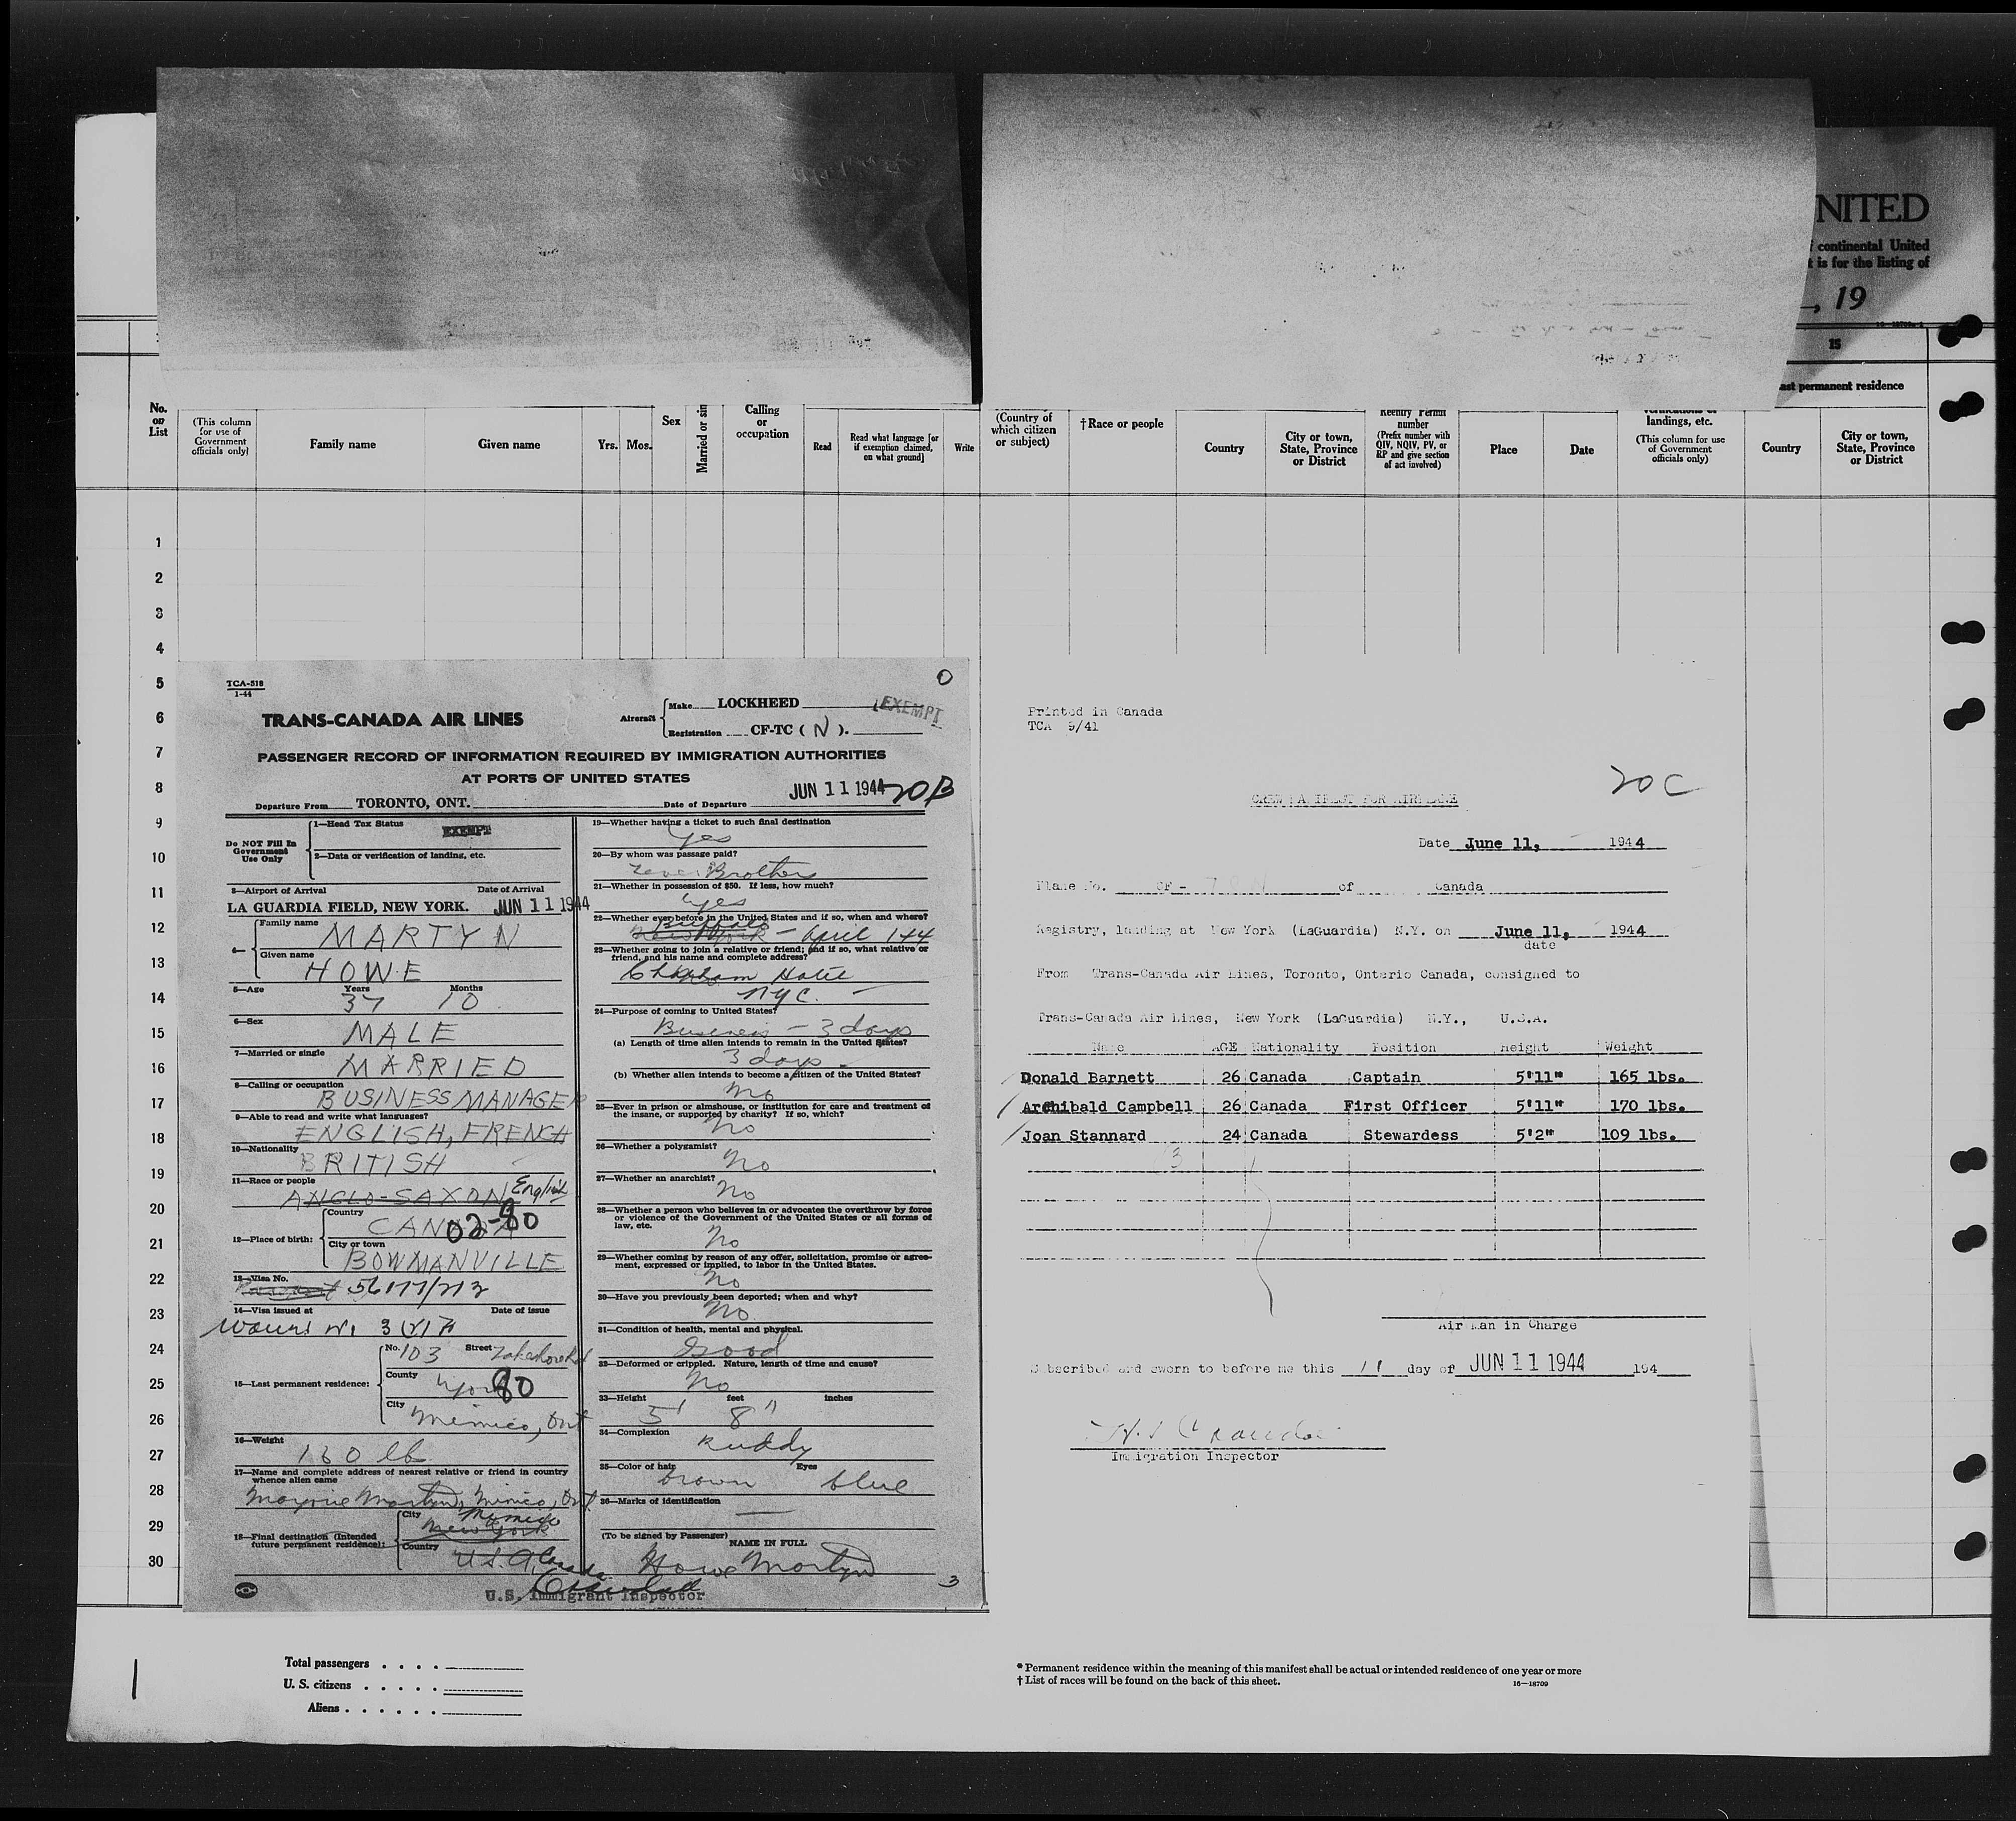 NITED
continental United
t is for the listing of
, 19
15
ast permanent residence
No. on List
(This column for use of Government officials only)
Family name
Given name
Yrs.
Mos.
Sex
Married or sin
Calling or occupation
Read
Read what language [or if exemption claimed, on what ground]
Write
(Country of which citizen or subject)
† Race or people
Country
City or town, State, Province or District
Reentry Permit number (Prefix number with QIV, NQIV, PV, or RP and give section of act involved)
Place
Date
verifications of landings, etc. (This column for use of Government officials only)
Country
City or town, State, Province or District
1
2
3
4
5
6
7
8
9
10
11
12
13
14
15
16
17
18
19
20
21
22
23
24
25
26
27
28
29
30
TCA-518
1-44
0
TRANS-CANADA AIR LINES
Aircraft
Make LOCKHEED
EXEMPT
Registration CF-TC ( N ).
PASSENGER RECORD OF INFORMATION REQUIRED BY IMMIGRATION AUTHORITIES
AT PORTS OF UNITED STATES
JUN 11 1944 20B
Departure From TORONTO, ONT. Date of Departure
Do NOT Fill In Government Use Only
1—Head Tax Status EXEMPT
2—Data or verification of landing, etc.
3—Airport of Arrival Date of Arrival
LA GUARDIA FIELD, NEW YORK. JUN 11 1944
4—
Family name
MARTYN
Given name
HOWE
5—Age Years Months
37 10
6—Sex
MALE
7—Married or single
MARRIED
8—Calling or occupation
BUSINESS MANAGER
9—Able to read and write what languages?
ENGLISH, FRENCH
10—Nationality
BRITISH
11—Race or people
ANGLO-SAXON English
12—Place of birth:
Country
CANADA 02-80
City or town
BOWMANVILLE
13—Visa No.
56177/213
14—Visa issued at Date of issue
15—Last permanent residence:
No. 103 Street
County York 80
City Mimico, Ont
16—Weight
160 lb
17—Name and complete address of nearest relative or friend in country whence alien came
Marjorie Martyn, Mimico, Ont.
18—Final destination (Intended future permanent residence):
City New York Mimico
Country U.S.A. Canada
U.S. Immigrant Inspector
19—Whether having a ticket to such final destination
Yes
20—By whom was passage paid?
Lever Brothers
21—Whether in possession of $50. If less, how much?
Yes
22—Whether ever before in the United States and if so, when and where?
Buffalo
New York - April 1944
23—Whether going to join a relative or friend; and if so, what relative or friend, and his name and complete address?
Chatham Hotel
NYC.
24—Purpose of coming to United States?
Business - 3 days
(a) Length of time alien intends to remain in the United States?
3 days
(b) Whether alien intends to become a citizen of the United States?
No
25—Ever in prison or almshouse, or institution for care and treatment of the insane, or supported by charity? If so, which?
No
26—Whether a polygamist?
No
27—Whether an anarchist?
No
28—Whether a person who believes in or advocates the overthrow by force or violence of the Government of the United States or all forms of law, etc.
No
29—Whether coming by reason of any offer, solicitation, promise or agreement, expressed or implied, to labor in the United States.
No
30—Have you previously been deported; when and why?
No.
31—Condition of health, mental and physical.
Good
32—Deformed or crippled. Nature, length of time and cause?
No
33—Height feet inches
5' 8"
34—Complexion
Ruddy
35—Color of hair Eyes
brown blue
36—Marks of identification
—
(To be signed by Passenger)
NAME IN FULL
Howe Martyn
3
Printed in Canada
TCA 9/41
20C
CREW MANIFEST FOR AIRPLANE
Date June 11, 1944
Plane No. CF - TCN of Canada
Registry, landing at New York (LaGuardia) N.Y. on June 11, 1944
date
From Trans-Canada Air Lines, Toronto, Ontario Canada, consigned to
Trans-Canada Air Lines, New York (LaGuardia) N.Y., U.S.A.
Name AGE Nationality Position Height Weight
Donald Barnett 26 Canada Captain 5'11" 165 lbs.
Archibald Campbell 26 Canada First Officer 5'11" 170 lbs.
Joan Stannard 24 Canada Stewardess 5'2" 109 lbs.
3
Air Man in Charge
Subscribed and sworn to before me this 11 day of JUN 11 1944 194
Immigration Inspector
Total passengers . . . .
U. S. citizens . . . . .
Aliens . . . . . .
* Permanent residence within the meaning of this manifest shall be actual or intended residence of one year or more
† List of races will be found on the back of this sheet.
16—18709